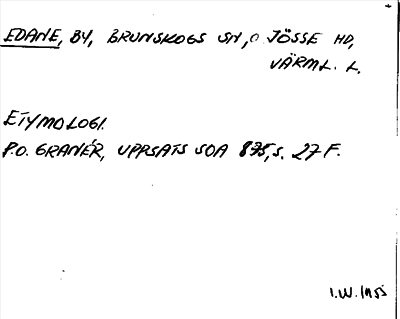 EDANE, BY, BRUNSKOGS SN, JÖSSE HD,
VÄRML. L.
ETYMOLOGI.
P.O. GRANÉR, UPPSATS SOA 875, S. 27 F.
I.W. 1955